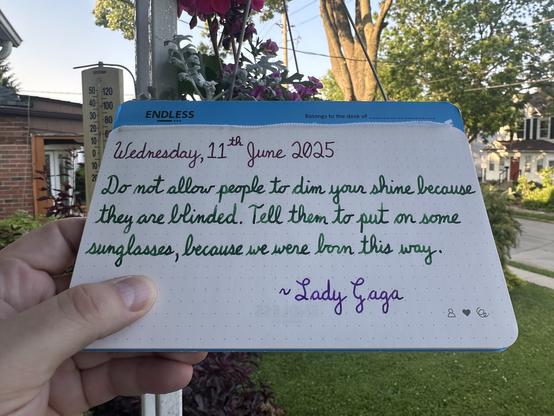 ENDLESS
Belongs to the desk of
Wednesday, 11th June 2025
Do not allow people to dim your shine because
they are blinded. Tell them to put on some
sunglasses, because we were born this way.
~ Lady Gaga